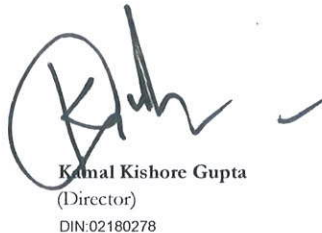 Kamal Kishore Gupta
(Director)
DIN:02180278